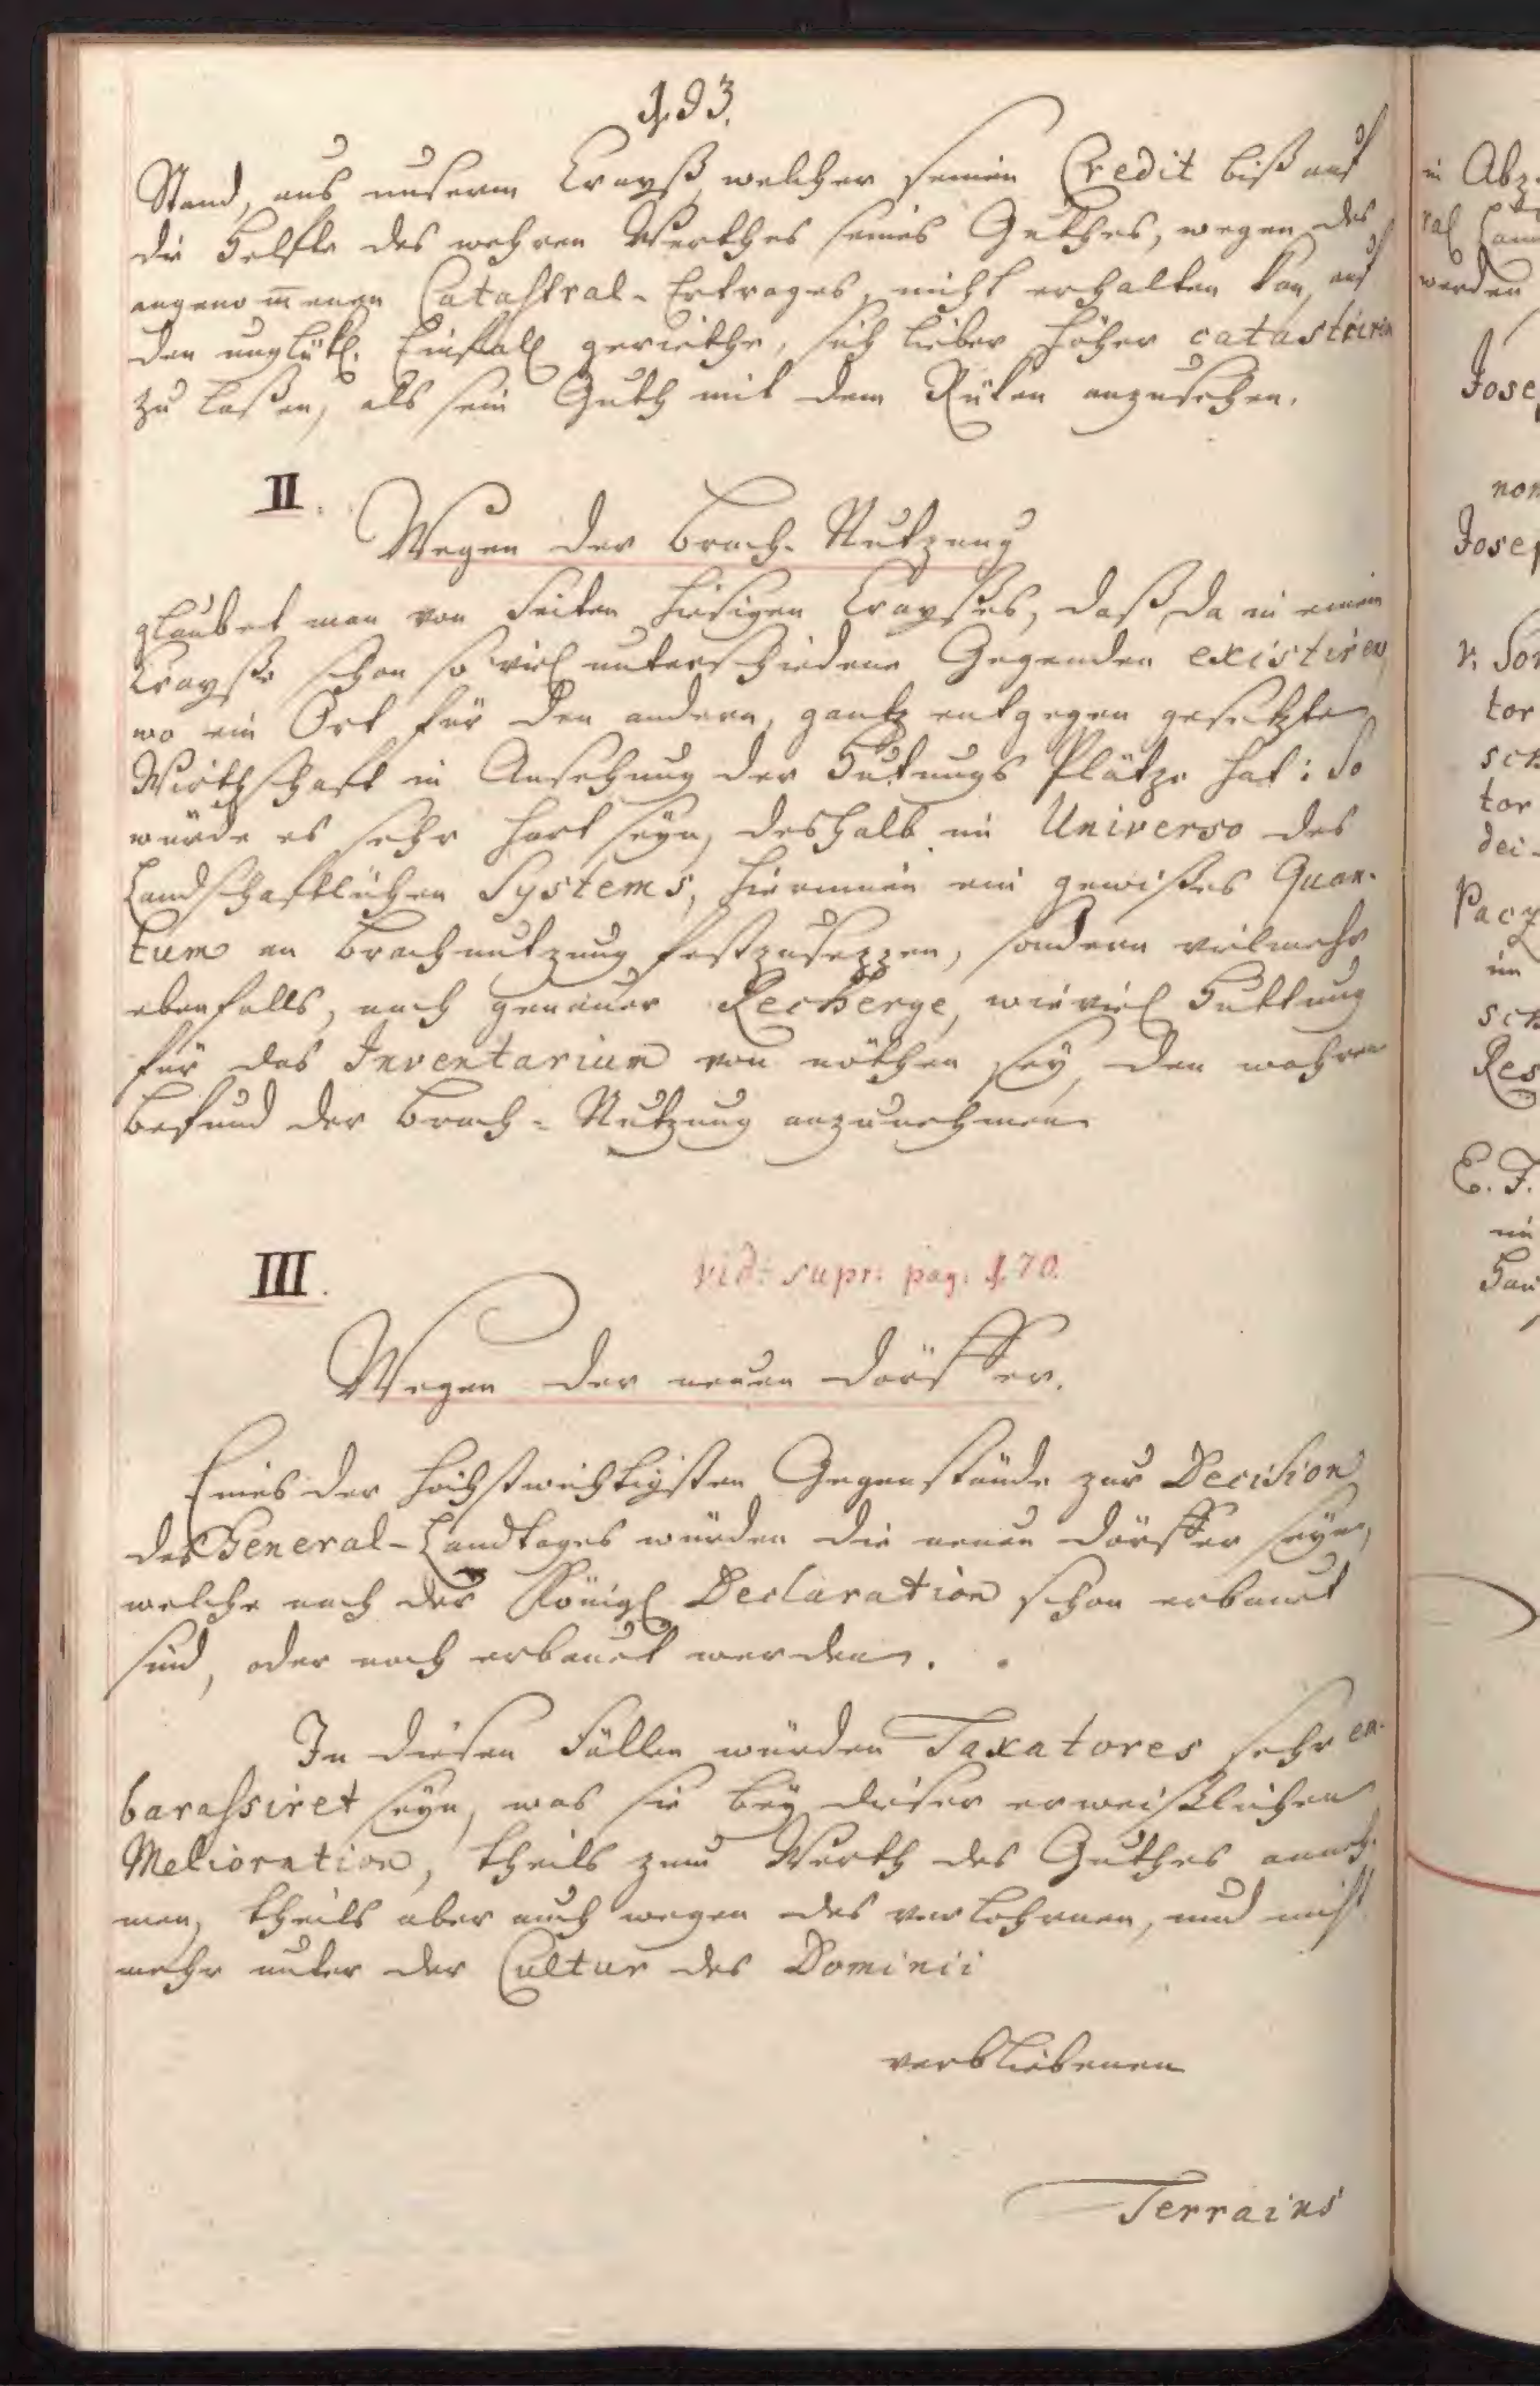 193.
Stand, aus unserm Crayß, welcher seinen Credit biß auf
die Helfte des wahren Werthes seines Guthes, wegen des
angenom̄enen Catastral-Ertrages, nicht erhalten kan, auf
den unglükl. Einfall geriethe, sich lieber höher catastriren
zu laßen, als sein Guth mit dem Rüken anzusehen.
II.
Wegen der Brach-Nutzung
glaubet man von Seiten hiesigen Crayßes, daß, da in einem
Crayße schon so viel unterschiedene Gegenden existiren,
wo ein Ort für den andern, gantz entgegen gesetzte
Wirthschaft in Ansehung der Hutungs Plätze hat: So
würde es sehr hart seyn, deshalb im Universo des
Landschaftlichen Systems, hierinnen ein gewißes Quan-
tum an Brachnutzung festzusezzen, sondern vielmehr
ebenfalls, nach genauer Recherge, wieviel Huttung
für das Inventarium von nöthen sey, den wahren
Befund der Brach-Nutzung anzunehmen
III.
vid: supr: pag: 170.
Wegen der neuen Dörffer.
Eines der höchstwichtigsten Gegenstände zur Decision
des General-Landtages würden die neuen Dörffer seyn,
welche nach der Königl Declaration schon erbauet
sind, oder noch erbauet werden.
In diesen Fällen würden Taxatores sehr en-
barassiret seyn, was sie bey dieser erweißlichen
Melioration, theils zum Werth des Guthes anneh-
men, theils aber auch wegen des verlohrnen, und nicht
mehr unter der Cultur des Dominii
verbliebenen
Terrains
in Abz
ral Cam
werden
Jose
non
Josep
v. Son
tor
sch
tor
dei-
Pacz
im
sch
Res
E. F.
im
Hau